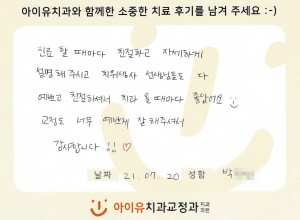 아이유치과와 함께한 소중한 치료 후기를 남겨 주세요 :-)
진료 할 때마다 친절하고 자세하게
설명해주시고 치위생사 선생님들도 다
예쁘고 친절하셔서 치과 올 때마다 좋았어요
교정도 너무 예쁘게 잘 해주셔서
감사합니다 :) ♡
날짜 21.07.20 성함 박
아이유치과교정과 치과의원